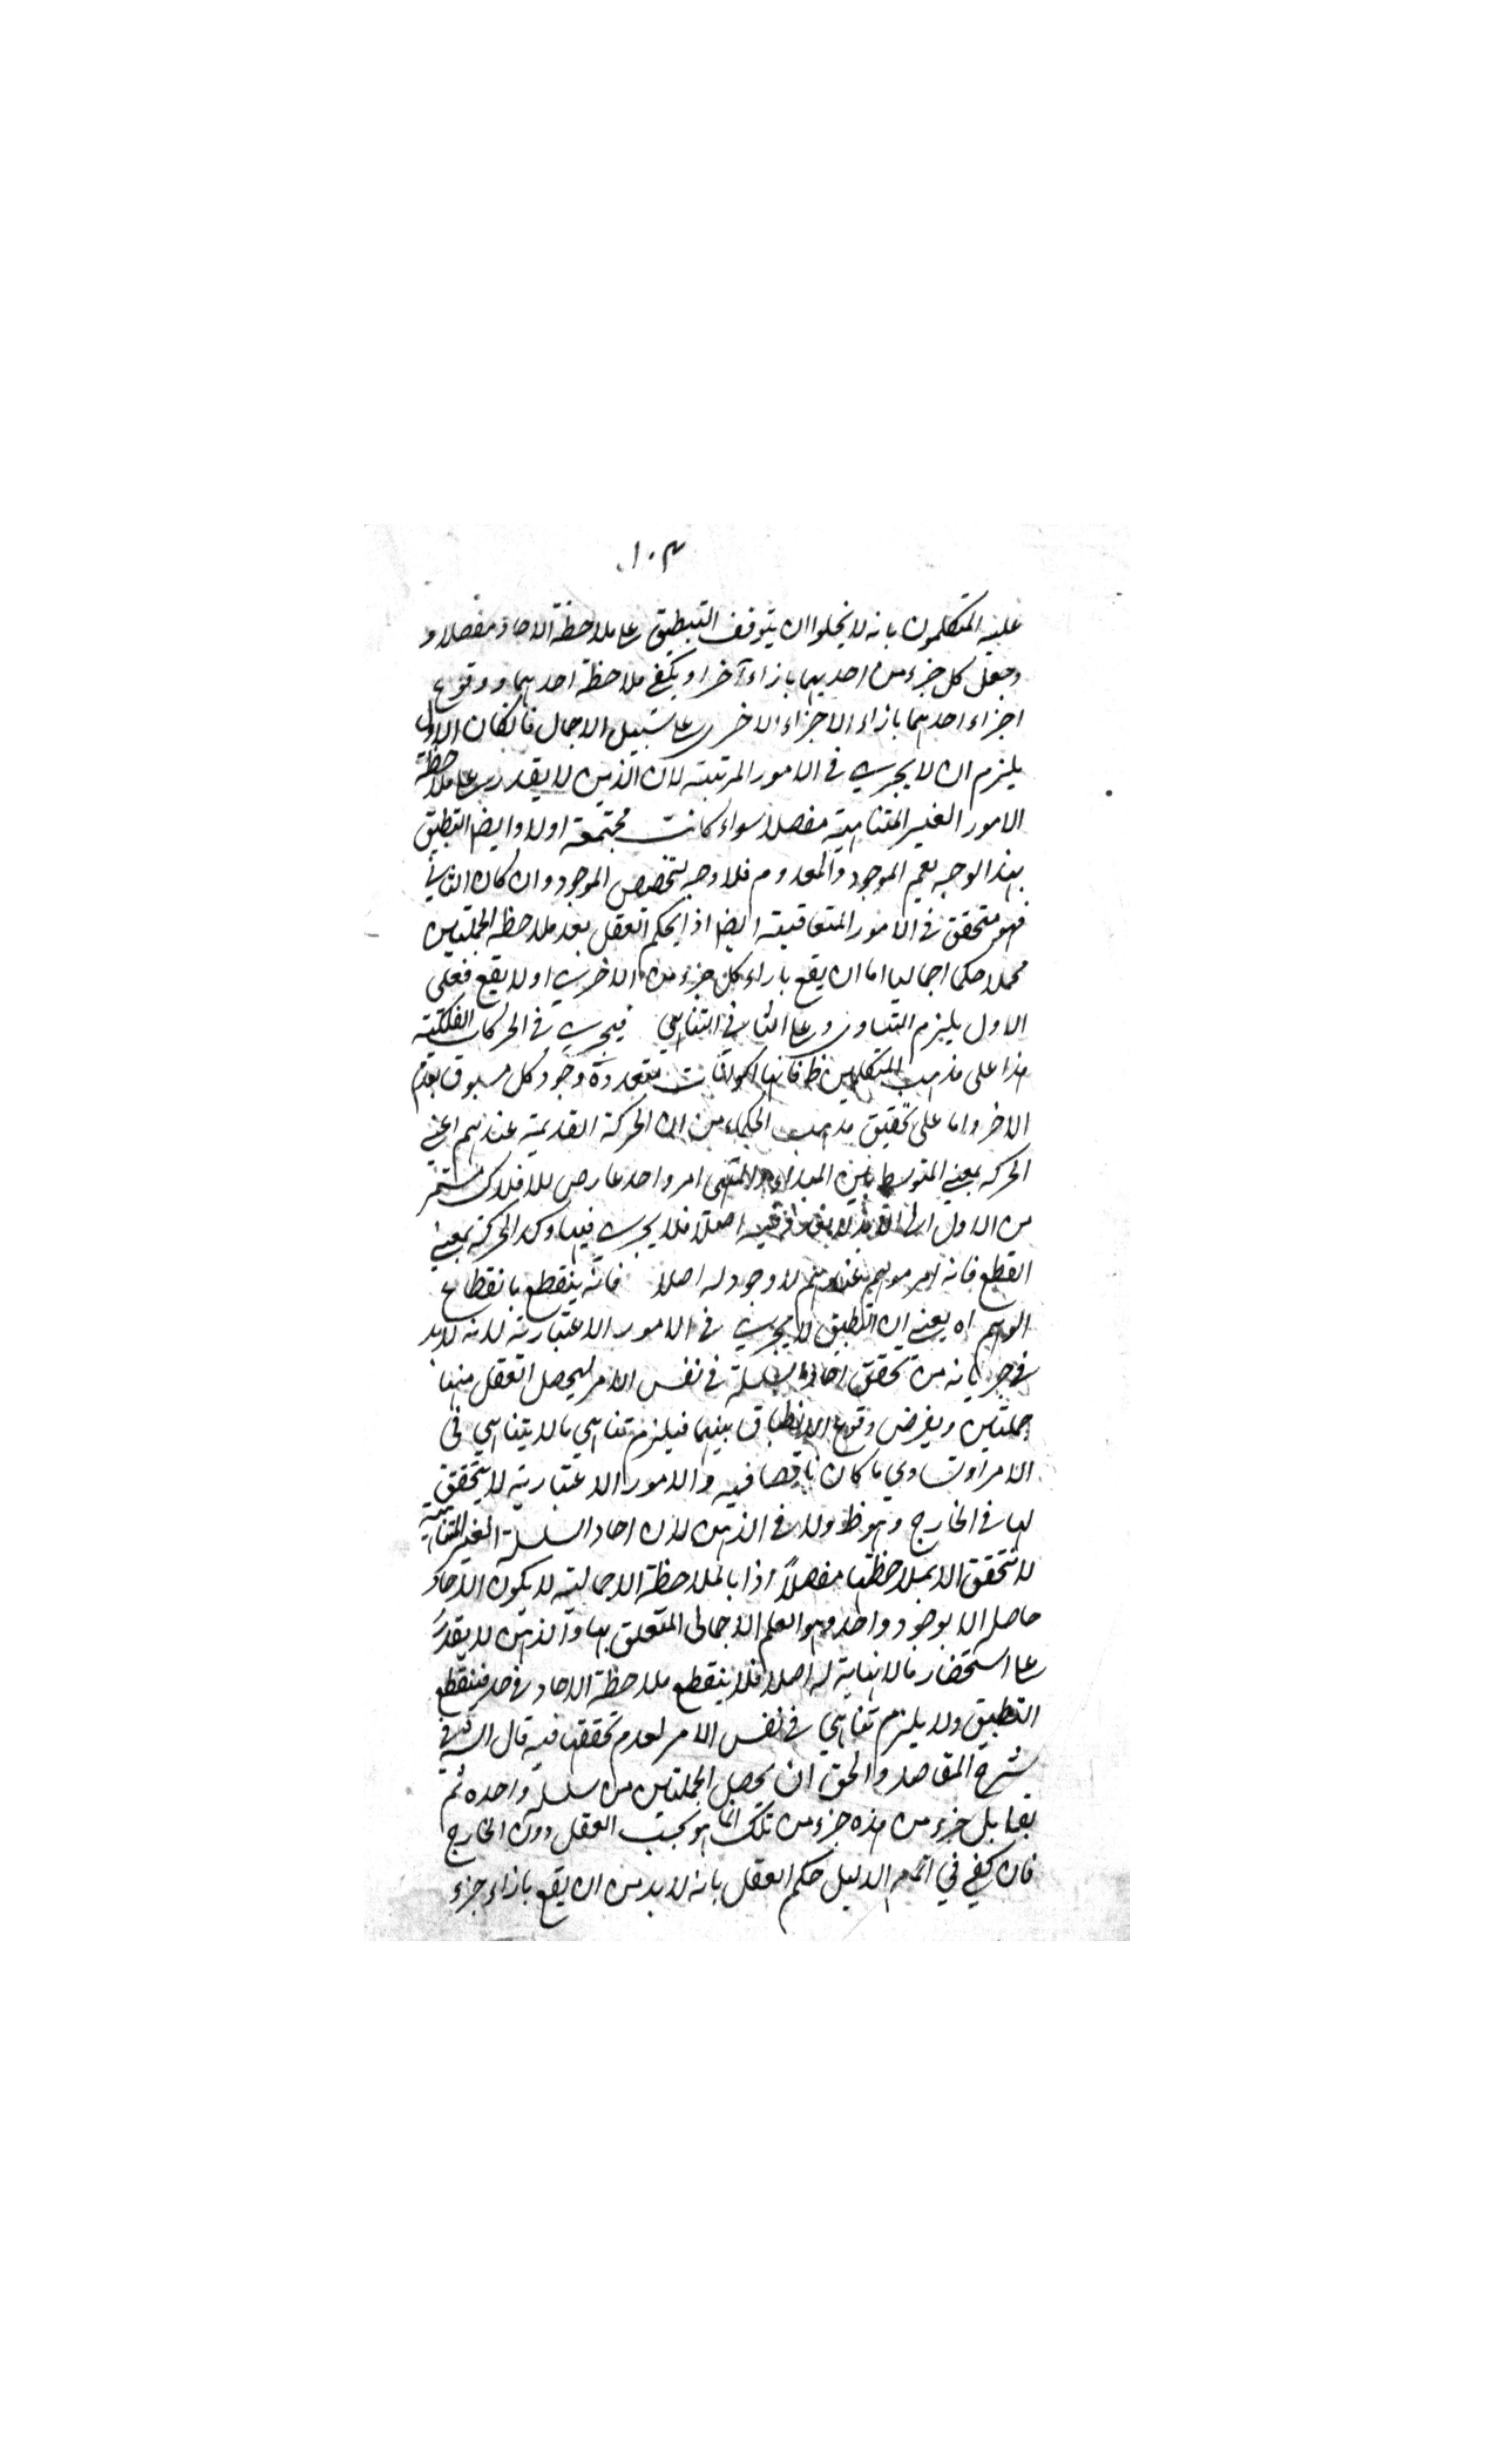 ١٠٣
عليه المتكلمون بانه لا يخلوا ان يتوقف التطبيق على ملاحظة الاحاد مفصلا و
وجعل كل جزء من احديهما بازاء آخر او يكفي ملاحظة احديهما ووقوع
اجزاء احديهما بازاء الاجزاء الاخرى على سبيل الاجمال فان كان الاول
يلزم ان لا يجري في الامور المرتبة لان الذهن لا يقدر على ملاحظة
الامور الغير المتناهية مفصلا سواء كانت مجتمعة اولا وايضا التطبيق
بهذا الوجه يعم الموجود والمعدوم فلا وجه لتخصيص الموجود وان كان الثاني
فهو متحقق في الامور المتعاقبة ايضا اذ يحكم العقل بعد ملاحظة الجملتين
مجملا حكما اجماليا اما ان يقع بازاء كل جزء من الاخرى اولا يقع فعلى
الاول يلزم التساوي وعلى الثاني التناهي فيجري في الحركات الفلكية
هذا على مذهب المتكلمين ظ فانها اكوان متعددة وجود كل مسبوق بعدم
الاخر واما على تحقيق مذهب الحكماء من ان الحركة القديمة عندهم اعني
الحركة بمعنى المتوسط بين المبداء والمنتهى امر واحد عارض للافلاك مستمر
من الاول الى اصلا فلا يجري فيها وكذا الحركة بمعنى
القطع فانه امر موهوم عندهم لا وجود له اصلا فانه ينقطع بانقطاع
الوهم اه يعني ان التطبيق لا يجري في الامور الاعتبارية لانه لا بد
في جريانه من تحقق احاد السلسلة في نفس الامر ليحصل العقل منها
جملتين ويفرض وقوع الانطباق بينهما فيلزم تناهي ما لا يتناهى في
الامر او تساوي ما كان ناقصا فيه والامور الاعتبارية لا يتحقق
لها في الخارج وهو ظ ولا في الذهن لان احاد السلسلة الغير المتناهية
لا تتحقق الا بملاحظتها مفصلاً اذ بالملاحظة الاجمالية لا يكون الاحاد
حاصلا الا بوجود واحد وهو العلم الاجمالى المتعلق بها والذهن لا يقدر
على استحضار ما لا نهاية له اصلا فلا ينقطع ملاحظة الاحاد في حد فينقطع
التطبيق ولا يلزم تناهي في نفس الامر لعدم تحققها فيه قال الش في
شرح المقاصد والحق ان تحصيل الجملتين من سلسلة واحده ثم
تقابل جزء من هذه جزء من تلك انما هو بحسب العقل دون الخارج
فان كفي في اتمام الدليل حكم العقل بانه لا بد من ان يقع بازاء جزء